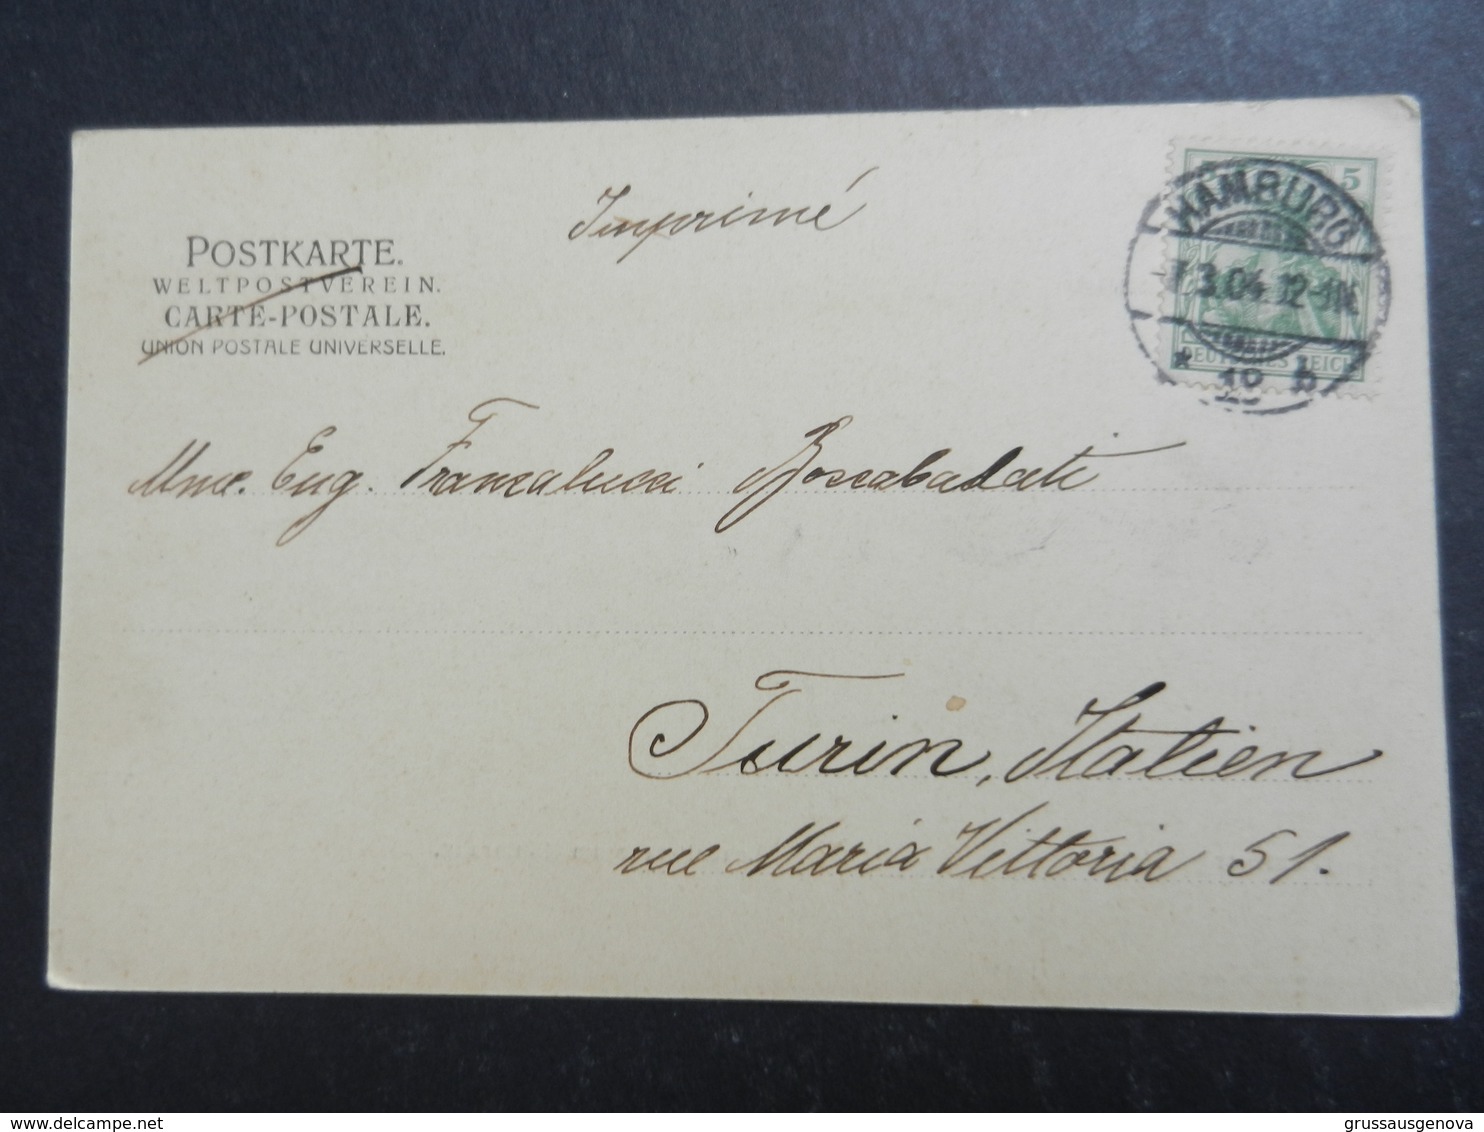 Imprimé
POSTKARTE.
WELTPOSTVEREIN.
CARTE-POSTALE.
UNION POSTALE UNIVERSELLE.
5
HAMBURG
3.04. 12-1N
* 18 b
DEUTSCHES REICH
Mme. Eug. Francalucci Boscabadati
Turin, Italien
rue Maria Vittoria 51.
delcampe.net
grussausgenova